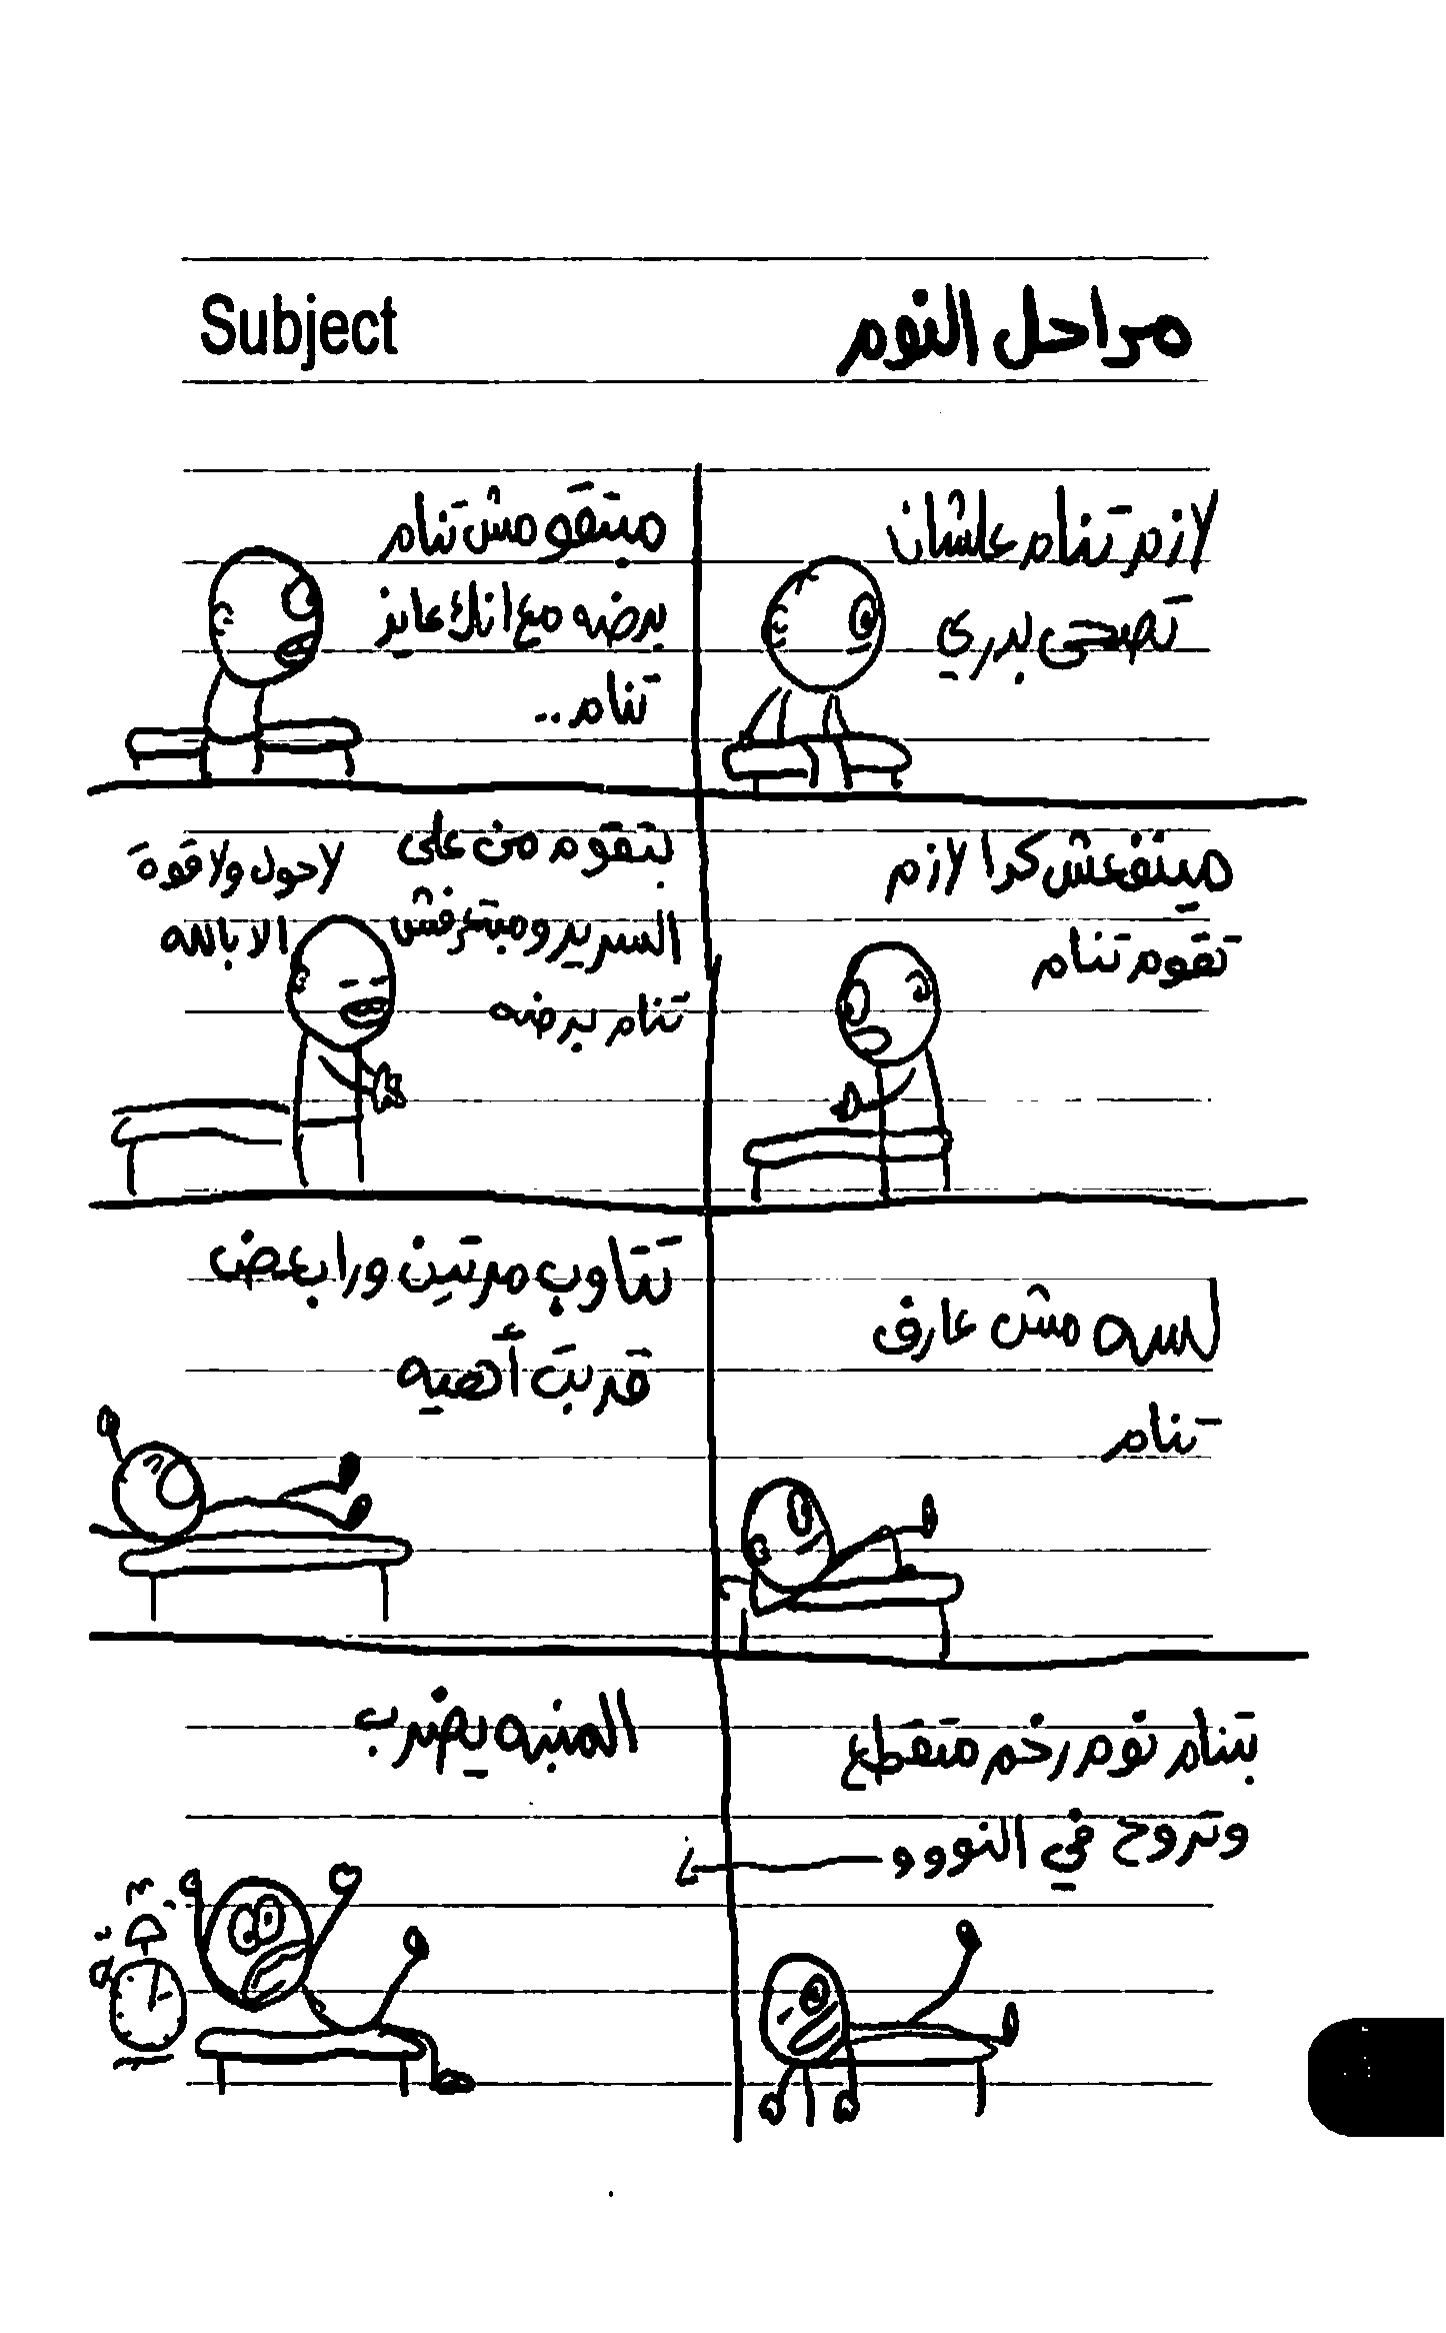 Subject
مراحل النوم
لازم تنام علشان
تصحى بدري
مبتقومش تنام
برضه مع انك عايز
تنام ..
مينفعش كدا لازم
تقوم تنام
بتقوم من على
السرير ومبتعرفش
تنام برضه
لا حول ولا قوة
الا بالله
لسه مش عارف
تنام
تتاوب مرتين ورا بعض
قربت أهيه
بتنام نوم رخم متقطع
وتروح في النووو
المنبه يضرب